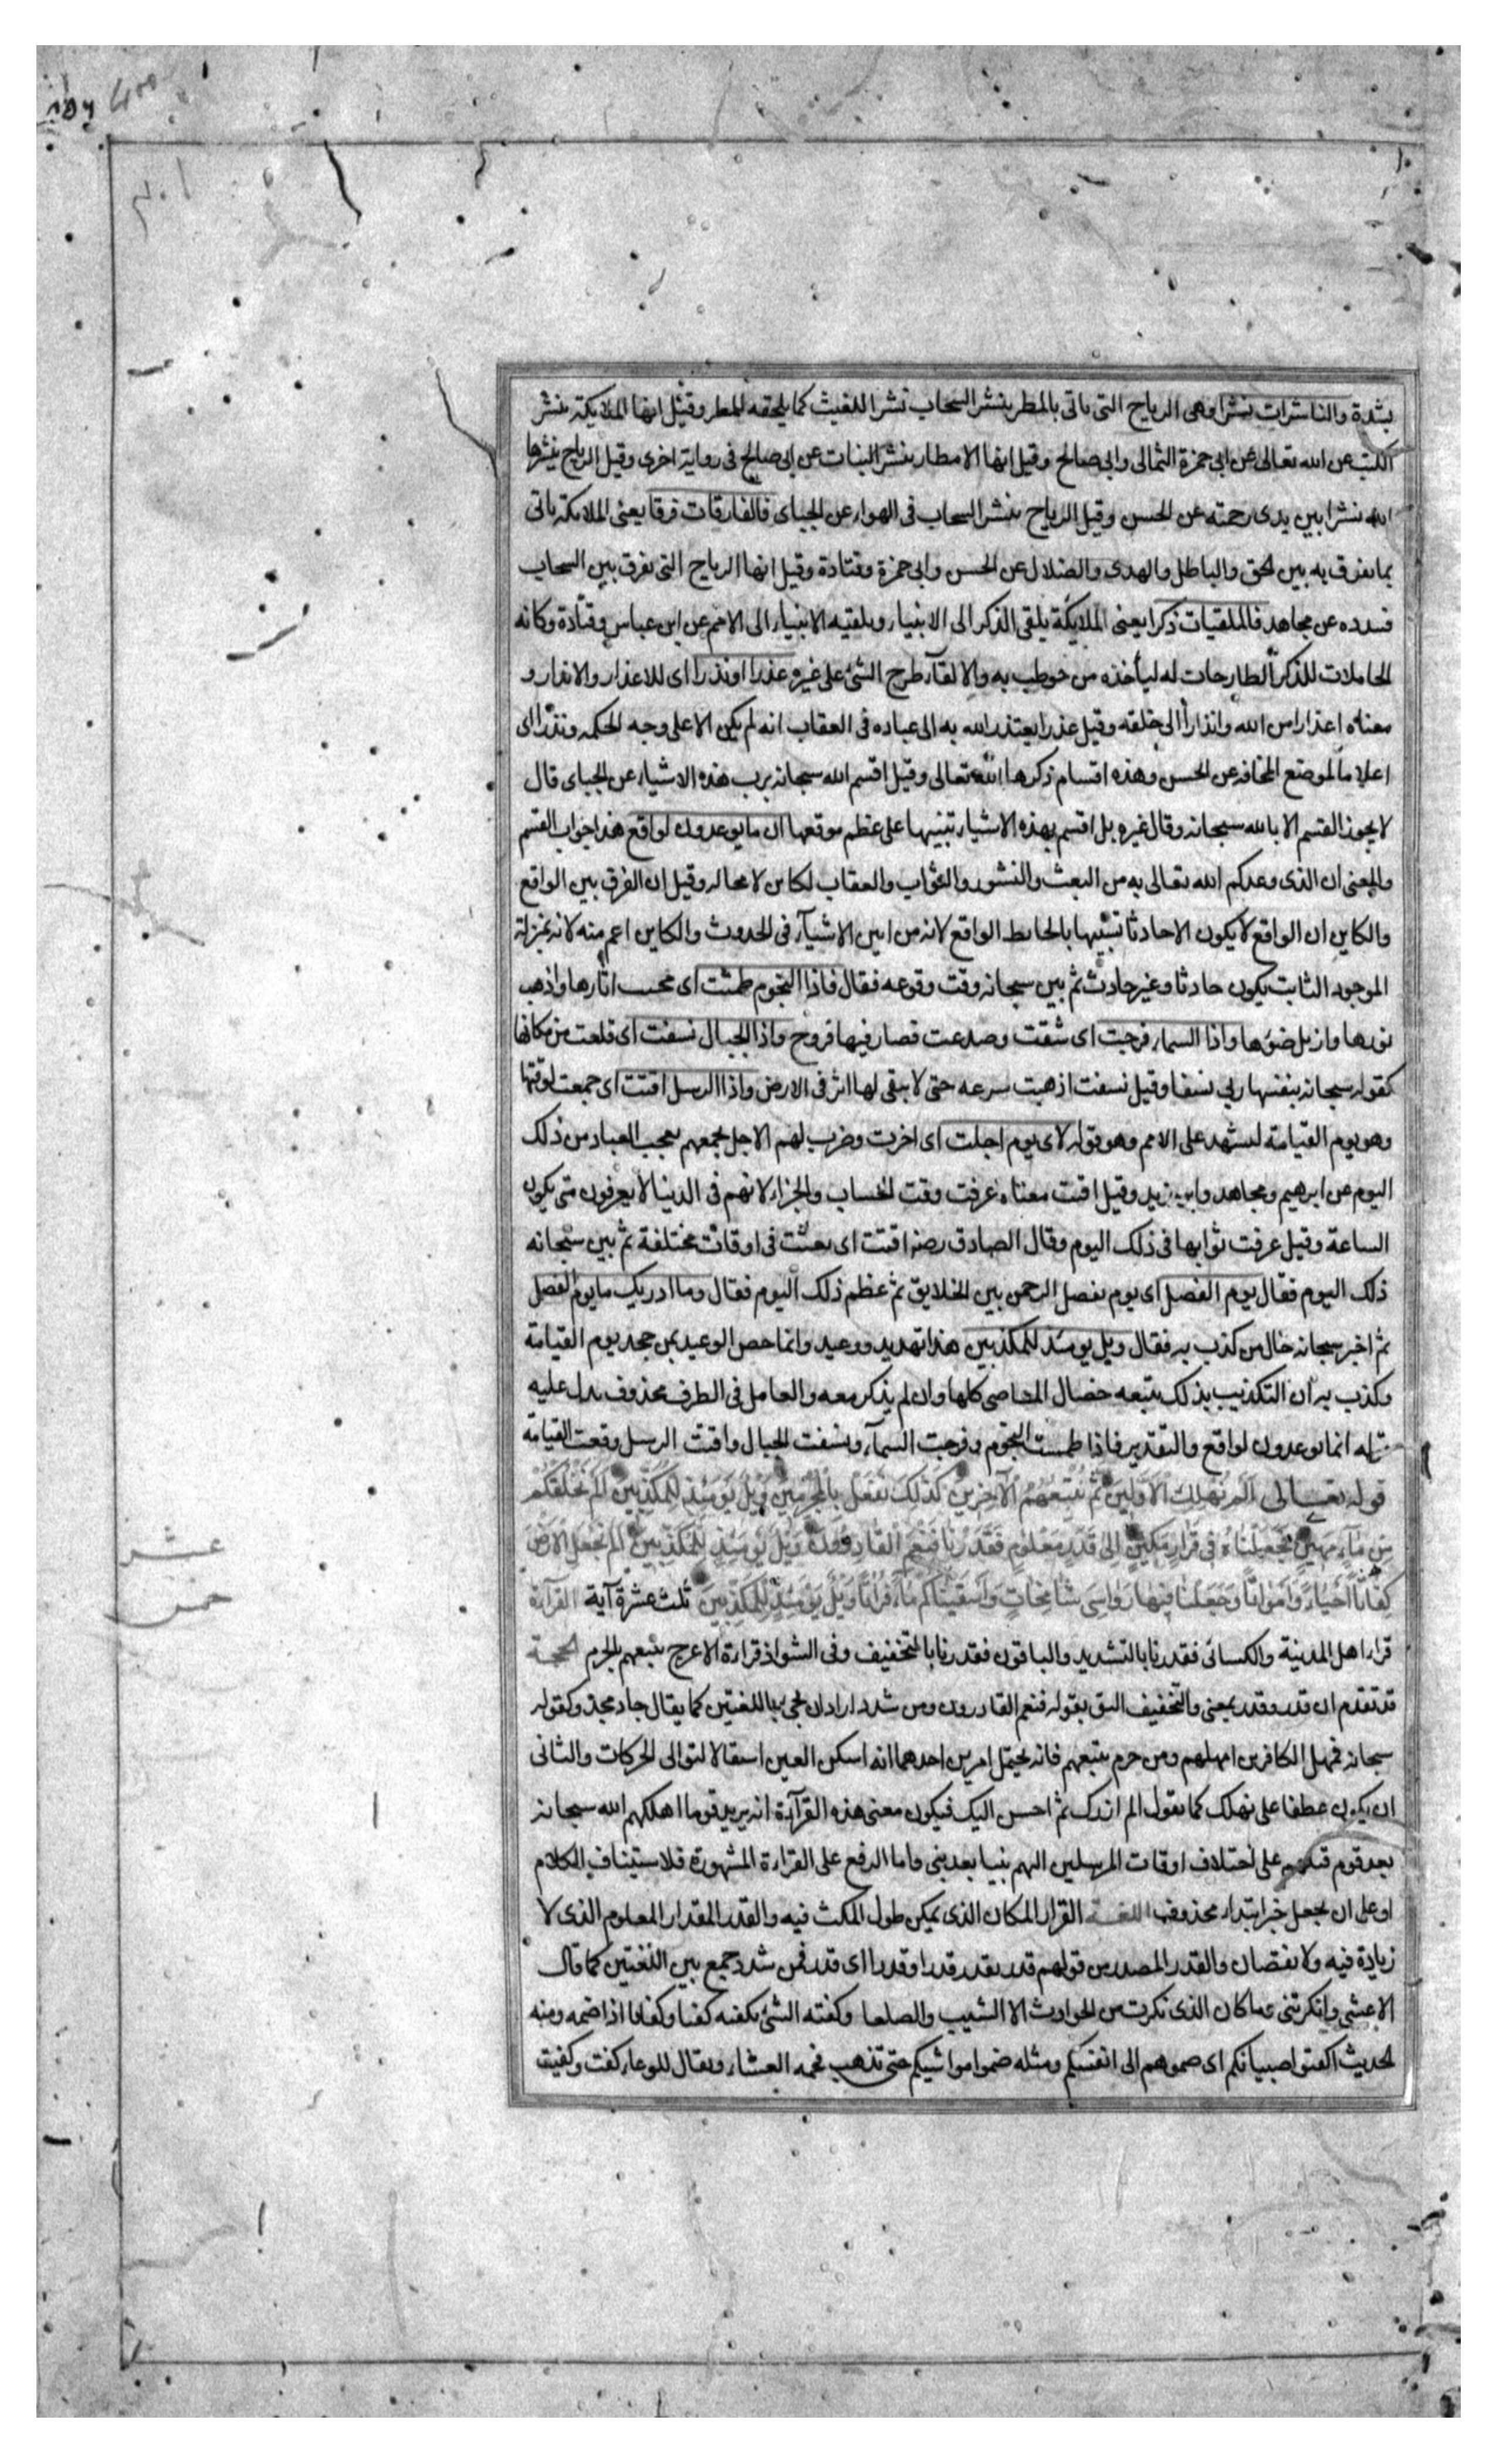 بشدة والناشرات نشرا وهى الرياح التى ياتى بالمطر ينشر السحاب نشرا للغيث كما يلحقه للمطر وقيل انها الملايكة ينشر
الكتب عن الله تعالى عن ابى حمزة الثمالى وابى صالح وقيل انها الامطار ينشر النبات عن ابى صالح فى رواية اخرى وقيل الرياح ينشرها
الله نشرا بين يدى رحمته عن الحسن وقيل الرياح ينشر السحاب فى الهواء عن الجباى فالفارقات فرقا يعنى الملايكة ياتى
بما يفرق به بين الحق والباطل والهدى والضلال عن الحسن وابى حمزة وقتادة وقيل انها الرياح التى يفرق بين السحاب
فيبدده عن مجاهد فالملقيات ذكرا يعنى الملايكة يلقى الذكر الى الانبياء ويلقيه الانبياء الى الامم عن ابن عباس وقتادة وكانه
الحاملات للذكر الطارحات له ليأخذه من خوطب به والالقاء طرح الشئ على غيره عذرا او نذرا اى للاعذار والانذار و
معناه اعذارا من الله وانذارا الى خلقه وقيل عذرا يعتذر الله به الى عباده فى العقاب انه لم يكن الا على وجه الحكمه ونذرا اى
اعلاما لموضع المخافه عن الحسن وهذه اقسام ذكرها الله تعالى وقيل اقسم الله سبحانه برب هذه الاشياء عن الجباى قال
لا يجوز القسم الا بالله سبحانه وقال غيره بل اقسم بهذه الاشياء تنبيها على عظم موقعها ان ما يوعدون لواقع هذا جواب القسم
والمعنى ان الذى وعدكم الله تعالى به من البعث والنشور والثواب والعقاب لكاين لا محاله وقيل ان الفرق بين الواقع
والكاين ان الواقع لا يكون الا حادثا تشبيها بالحايط الواقع لانه من ابين الاشياء فى الحدوث والكاين اعم منه لانه بمنزلة
الموجود الثابت يكون حادثا وغير حادث ثم بين سبحانه وقت وقوعه فقال فاذا النجوم طمست اى محيت اثارها واذهب
نورها وازيل ضوءها واذا السماء فرجت اى شقت وصدعت فصار فيها فروج واذا الجبال نسفت اى قلعت من مكانها
كقوله سبحانه ينسفها ربى نسفا وقيل نسفت اذهبت سرعه حتى لا يبقى لها اثر فى الارض واذا الرسل اقتت اى جمعت لوقتها
وهو يوم القيامة ليشهد على الامم وهو قوله لاى يوم اجلت اى اخرت وضرب لهم الاجل لجمعهم يعجب العباد من ذلك
اليوم عن ابرهيم ومجاهد وابن زيد وقيل اقتت معناه عرفت وقت الحساب والجزاء لانهم فى الدنيا لا يعرفون متى يكون
الساعة وقيل عرفت ثوابها فى ذلك اليوم وقال الصادق رضه اقتت اى بعثت فى اوقات مختلفة ثم بين سبحانه
ذلك اليوم فقال يوم الفصل اى يوم يفصل الرحمن بين الخلايق ثم عظم ذلك اليوم فقال وما ادريك ما يوم الفصل
ثم اخبر سبحانه حال من كذب به فقال ويل يومئذ للمكذبين هذا تهديد ووعيد وانما خص الوعيد بمن جحد يوم القيامة
وكذب به ان التكذيب بذلك يتبعه خصال المعاصى كلها وان لم يذكر معه والعامل فى الظرف محذوف يدل عليه
قوله انما توعدون لواقع والتقدير فاذا طمست النجوم وفرجت السماء ونسفت الجبال واقتت الرسل وقعت القيامة
قوله تعالى اَلَمْ نُهْلِكِ الْاَوَّلِينَ ثُمَّ نُتْبِعُهُمُ الْاٰخِرِينَ كَذٰلِكَ نَفْعَلُ بِالْمُجْرِمِينَ وَيْلٌ يَوْمَئِذٍ لِلْمُكَذِّبِينَ اَلَمْ نَخْلُقْكُمْ
مِنْ مَاءٍ مَهِينٍ فَجَعَلْنَاهُ فِى قَرَارٍ مَكِينٍ اِلٰى قَدَرٍ مَعْلُومٍ فَقَدَرْنَا فَنِعْمَ الْقَادِرُونَ وَيْلٌ يَوْمَئِذٍ لِلْمُكَذِّبِينَ اَلَمْ نَجْعَلِ الْاَرْضَ
كِفَاتًا اَحْيَاءً وَاَمْوَاتًا وَجَعَلْنَا فِيهَا رَوَاسِىَ شَامِخَاتٍ وَاَسْقَيْنَاكُمْ مَاءً فُرَاتًا وَيْلٌ يَوْمَئِذٍ لِلْمُكَذِّبِينَ ثلث عشرة آية القراءة
عشر
خمس
قرا اهل المدينة والكسائى فقدرنا بالتشديد والباقون فقدرنا بالتخفيف وفى الشواذ قراءة الاعرج نتبعهم بالجزم الحجة
قد تقدم ان قدر وقدر بمعنى والتخفيف اليق بقوله فنعم القادرون ومن شدد اراد ان يجى باللغتين كما يقال جاد مجد وكقوله
سبحانه فمهل الكافرين امهلهم ومن جزم نتبعهم فانه يحتمل امرين احدهما انه اسكن العين استثقالا لتوالى الحركات والثانى
ان يكون عطفا على نهلك كما تقول الم ازرك ثم احسن اليك فيكون معنى هذه القراءة انه يريد قوما اهلكهم الله سبحانه
بعد قوم قبلهم على اختلاف اوقات المرسلين اليهم نبيا بعد نبى واما الرفع على القراءة المشهورة فلاستيناف الكلام
او على ان يجعل خبر ابتداء محذوف اللغة القرار المكان الذى يمكن طول المكث فيه والقدر المقدار المعلوم الذى لا
زيادة فيه ولا نقصان والقدر المصدر من قولهم قدر يقدر قدرا وقدرا اى قدر فمن شدد جمع بين اللغتين كما قال
الاعشى وانكرتنى وما كان الذى نكرت من الحوادث الا الشيب والصلعا وكفته الشئ يكفته كفتا وكفاتا اذا ضمه ومنه
الحديث اكفتوا صبيانكم اى ضموهم الى انفسكم ومثله ضموا مواشيكم حتى تذهب فحمه العشاء ويقال للوعاء كفت وكفيت